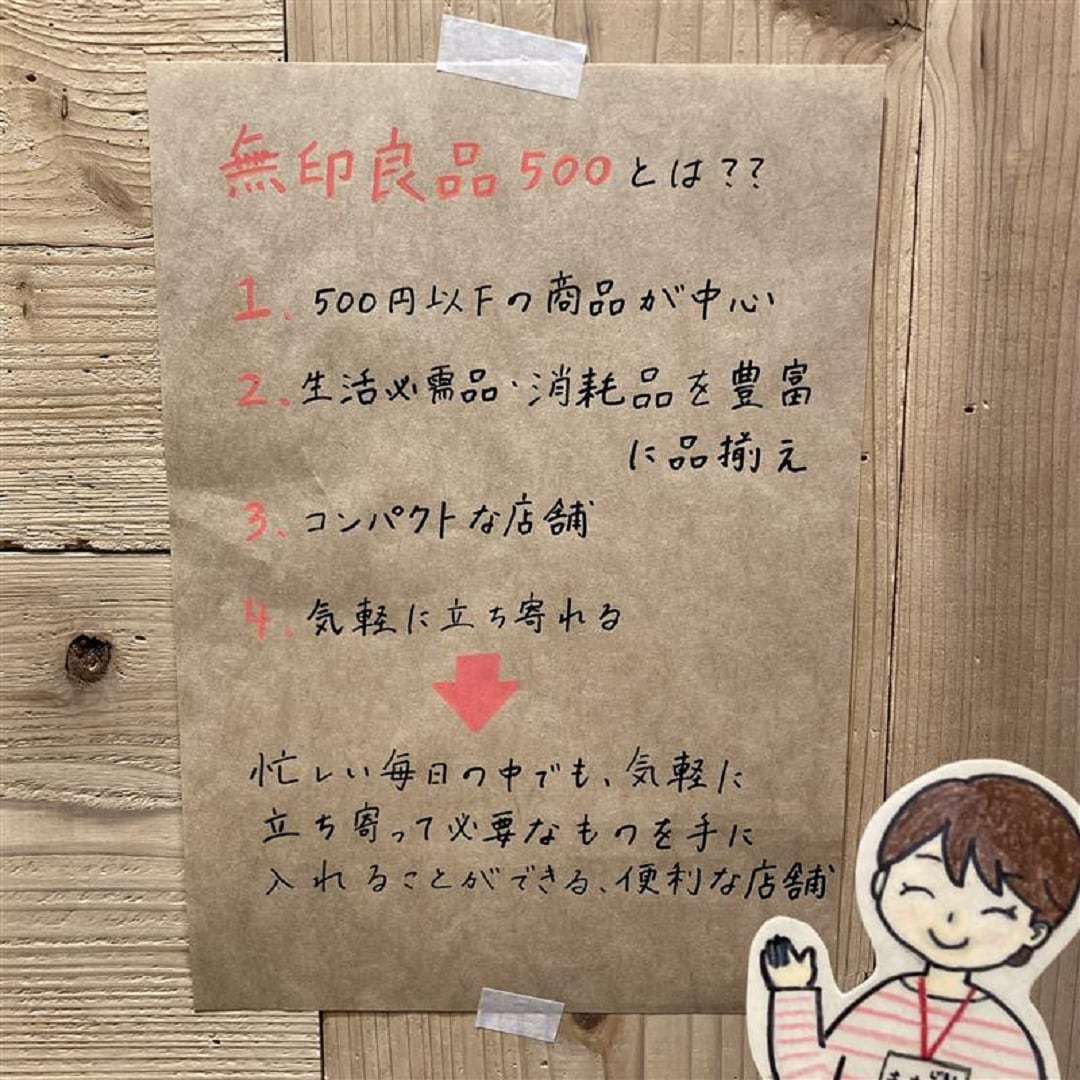 無印良品500とは??
1. 500円以下の商品が中心
2. 生活必需品・消耗品を豊富
に品揃え
3. コンパクトな店舗
4. 気軽に立ち寄れる
忙しい毎日の中でも、気軽に
立ち寄って必要なものを手に
入れることができる、便利な店舗